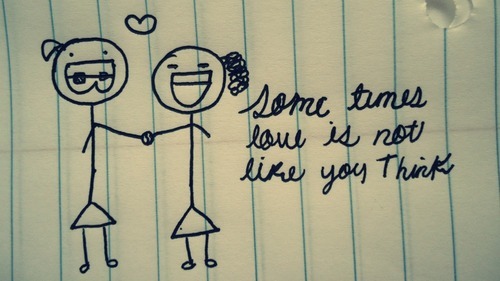 Some times
love is not
like you Think